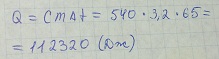 Q = cm∆t = 540 · 3,2 · 65 =
= 112320 (Дж)